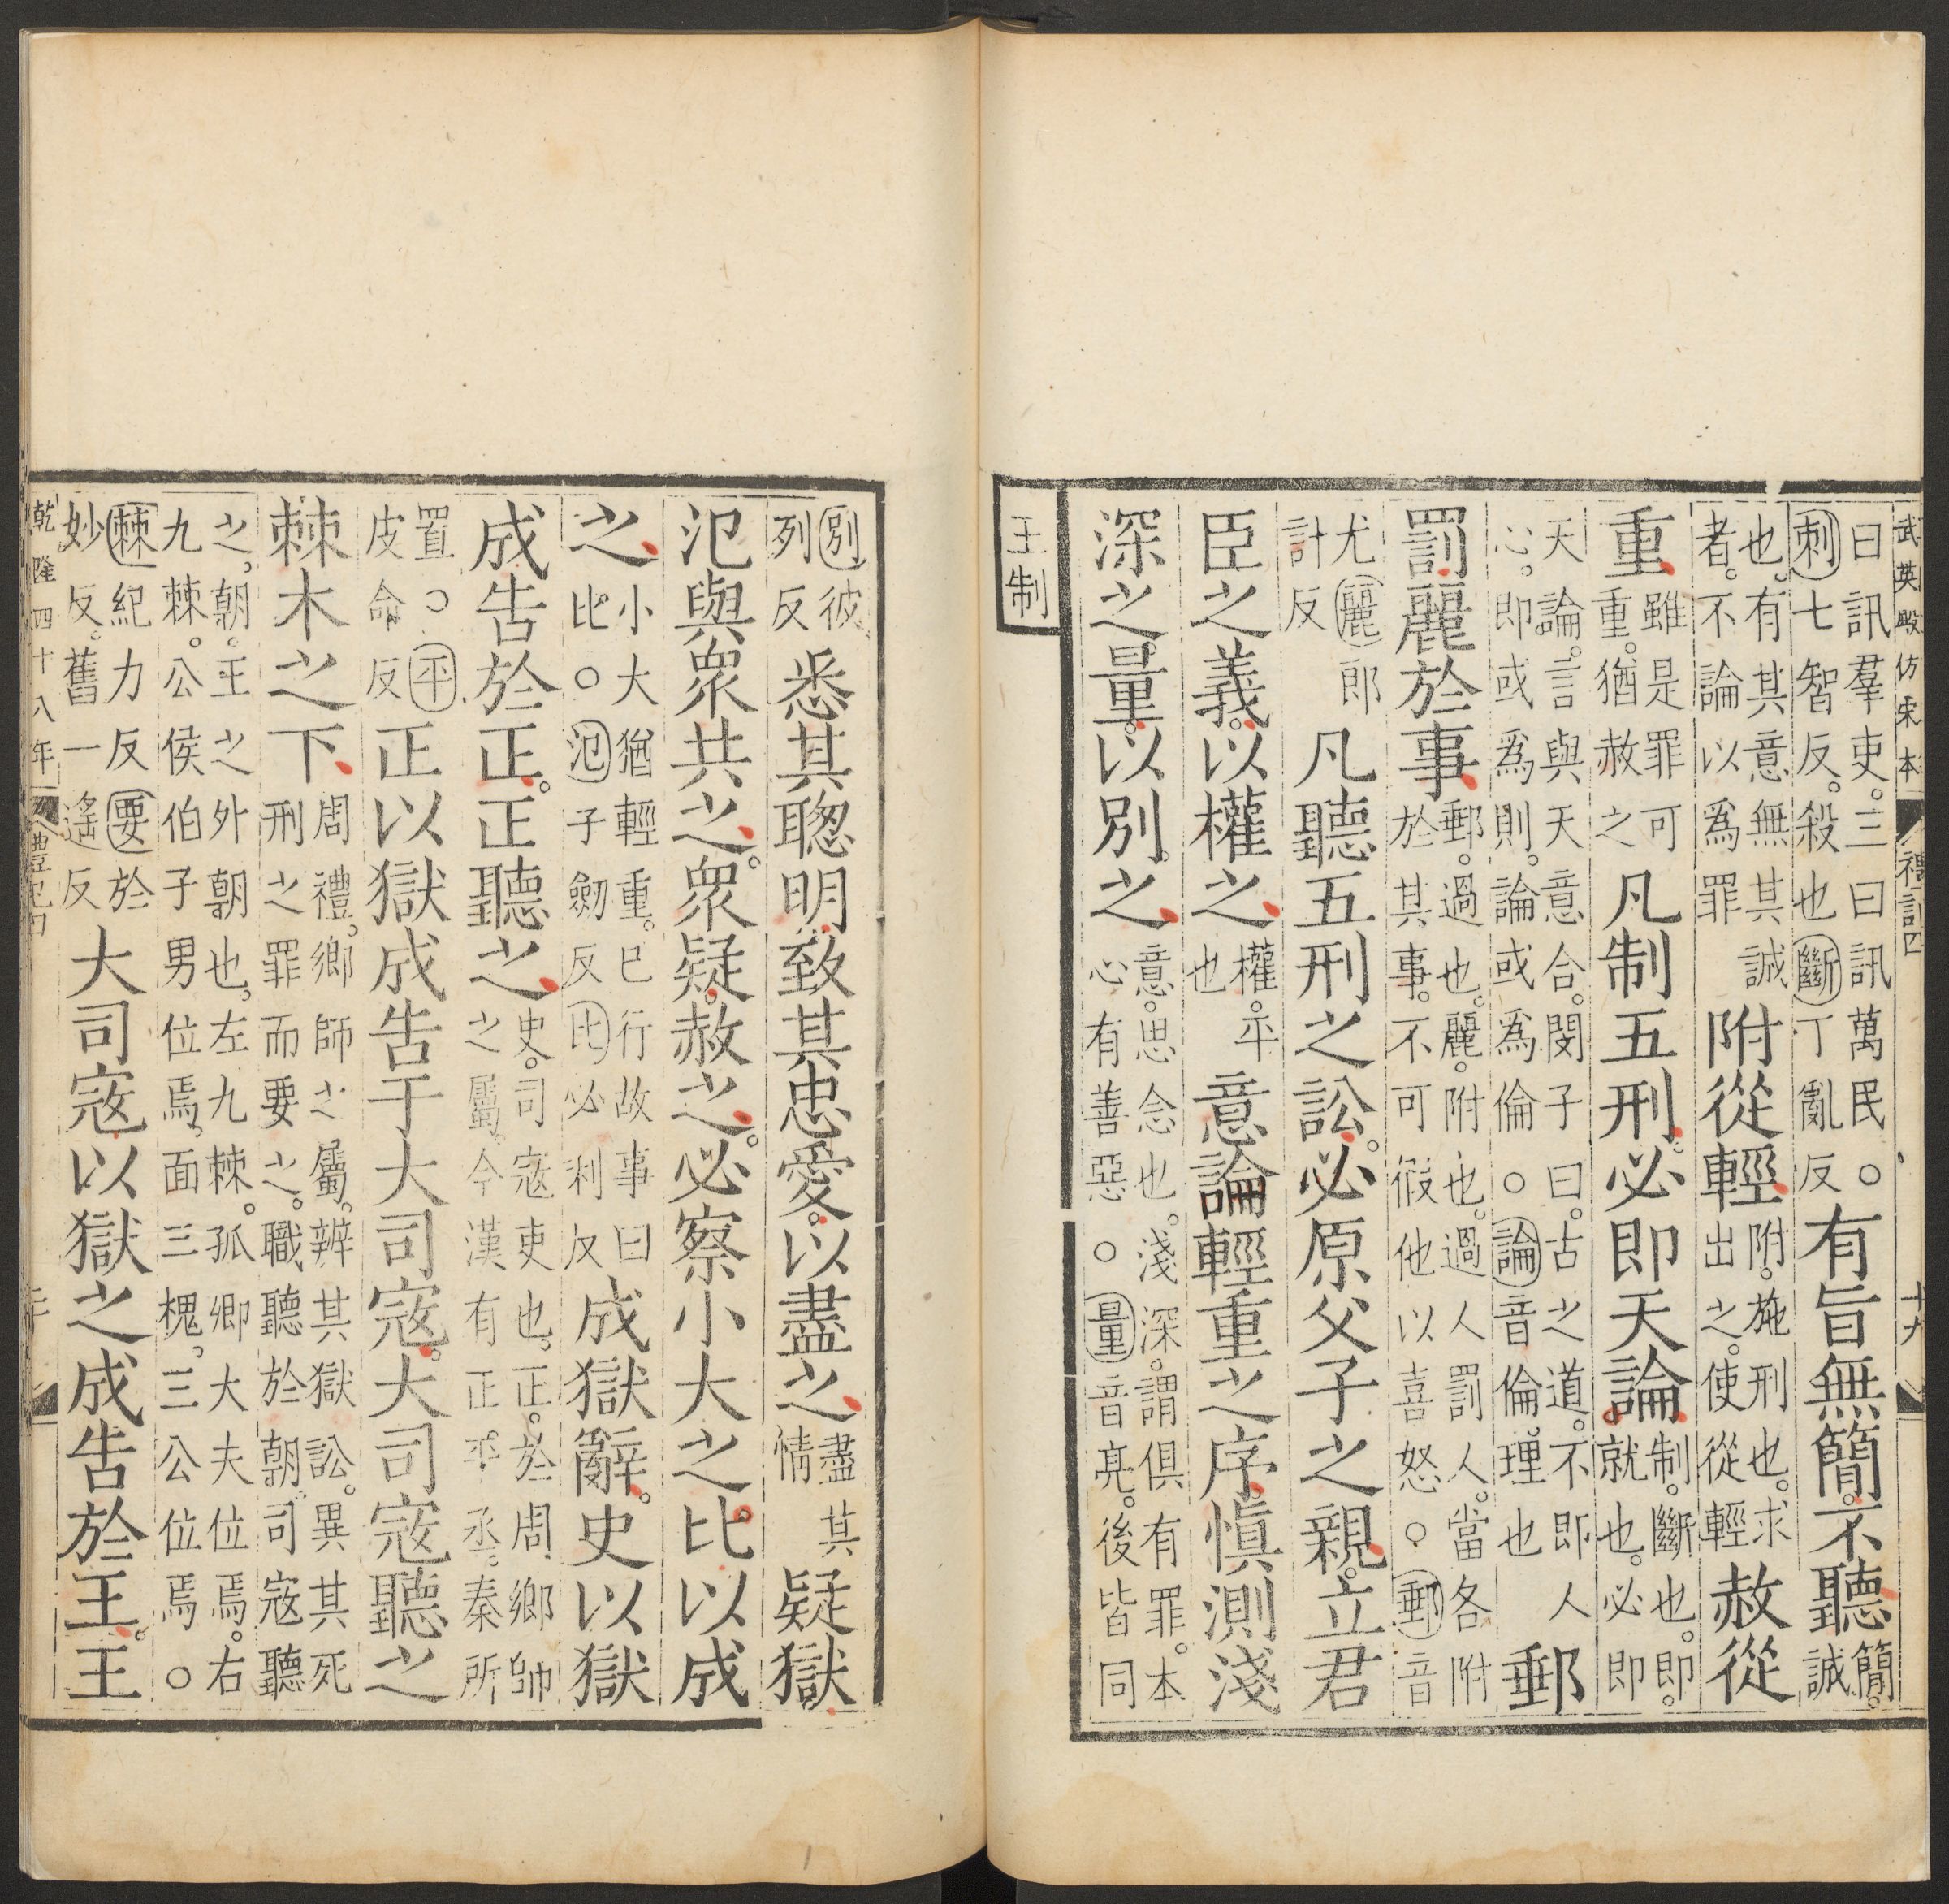 武英殿仿宋本 禮記四 十九
曰訊羣吏。三曰訊萬民○
刺七智反。殺也斷丁亂反
有旨無簡。不聽
簡。
誠
也。有其意無其誠
者。不論以爲罪
附從輕
附。施刑也。求
出之。使從輕
赦從
重
雖是罪可
重。猶赦之
凡制五刑。必即天論
制。斷也。即。
就也。必即
天論。言與天意合。閔子曰。古之道。不即人
心。即或爲則。論或爲倫○論音倫。理也
郵
罰麗於事
郵。過也。麗。附也。過人罰人。當各附
於其事。不可假他以喜怒。○郵音
尤麗郎
計反
凡聽五刑之訟。必原父子之親。立君
臣之義。以權之
權。平
也
意論輕重之序。慎測淺
深之量。以別之
意。思念也。淺深。謂俱有罪。本
心有善惡○量音亮。後皆同
王制
別彼
列反
悉其聰明。致其忠愛。以盡之
盡其
情
疑獄。
氾與衆共之。衆疑。赦之。必察小大之比。以成
之
小大猶輕重。已行故事曰
比。○氾孚劒反比必利反
成獄辭。史以獄
成告於正。正聽之
史。司寇吏也。正。於周鄉師
之屬。今漢有正平丞。秦所
置。○平
皮命反
正以獄成告于大司寇。大司寇聽之
棘木之下
周禮。鄉師之屬。辨其獄訟。異其死
刑之罪而要之。職聽於朝。司寇聽
之朝。王之外朝也。左九棘。孤卿大夫位焉。右
九棘。公侯伯子男位焉。面三槐。三公位焉○
棘紀力反要於
妙反。舊一遙反
大司寇以獄之成告於王。王
乾隆四十八年 禮記四 二十